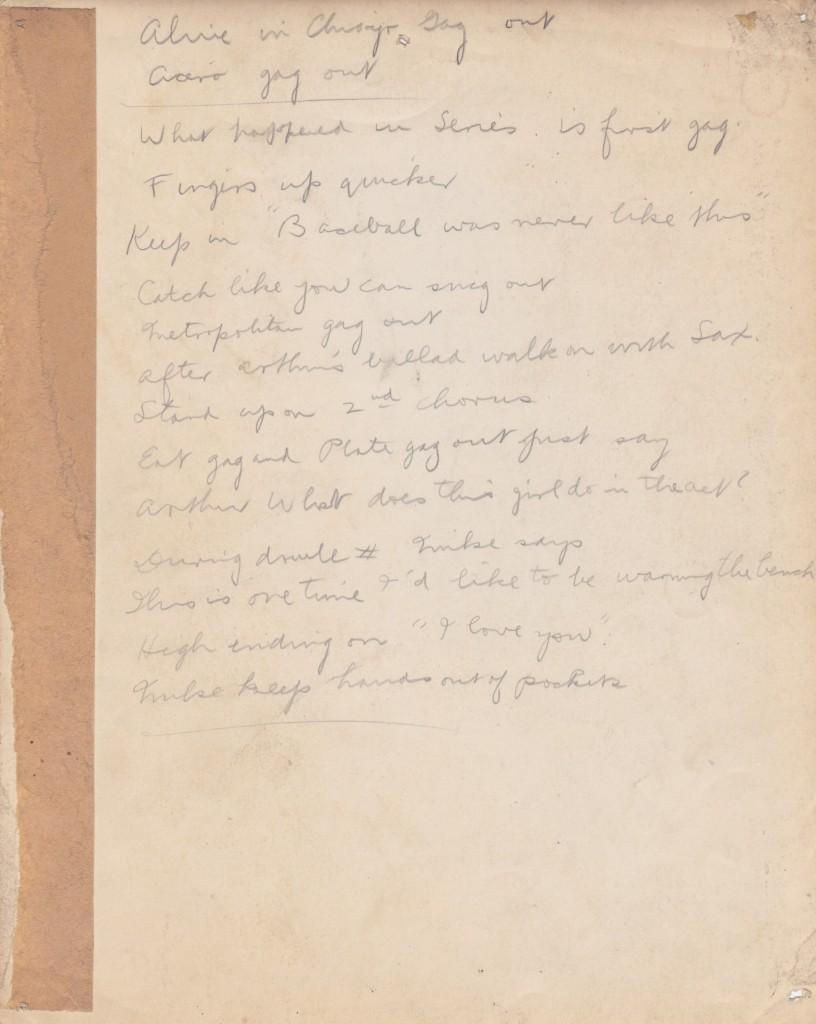 Alive in Chicago Gag out
gag out
What happened in Series. is first gag.
Fingers up quicker
Keep in "Baseball was never like this"
Catch like you can out
Metropolitan gag out
after Arthur's ballad walk on with Sax.
Stand up on 2nd chorus
Eat gag and Plate gag out just say
Arthur What does this girl do in the act?
During # Mike says
This is one time I'd like to be warming the bench
High ending on "I love you".
Mike keep hands out of pockets